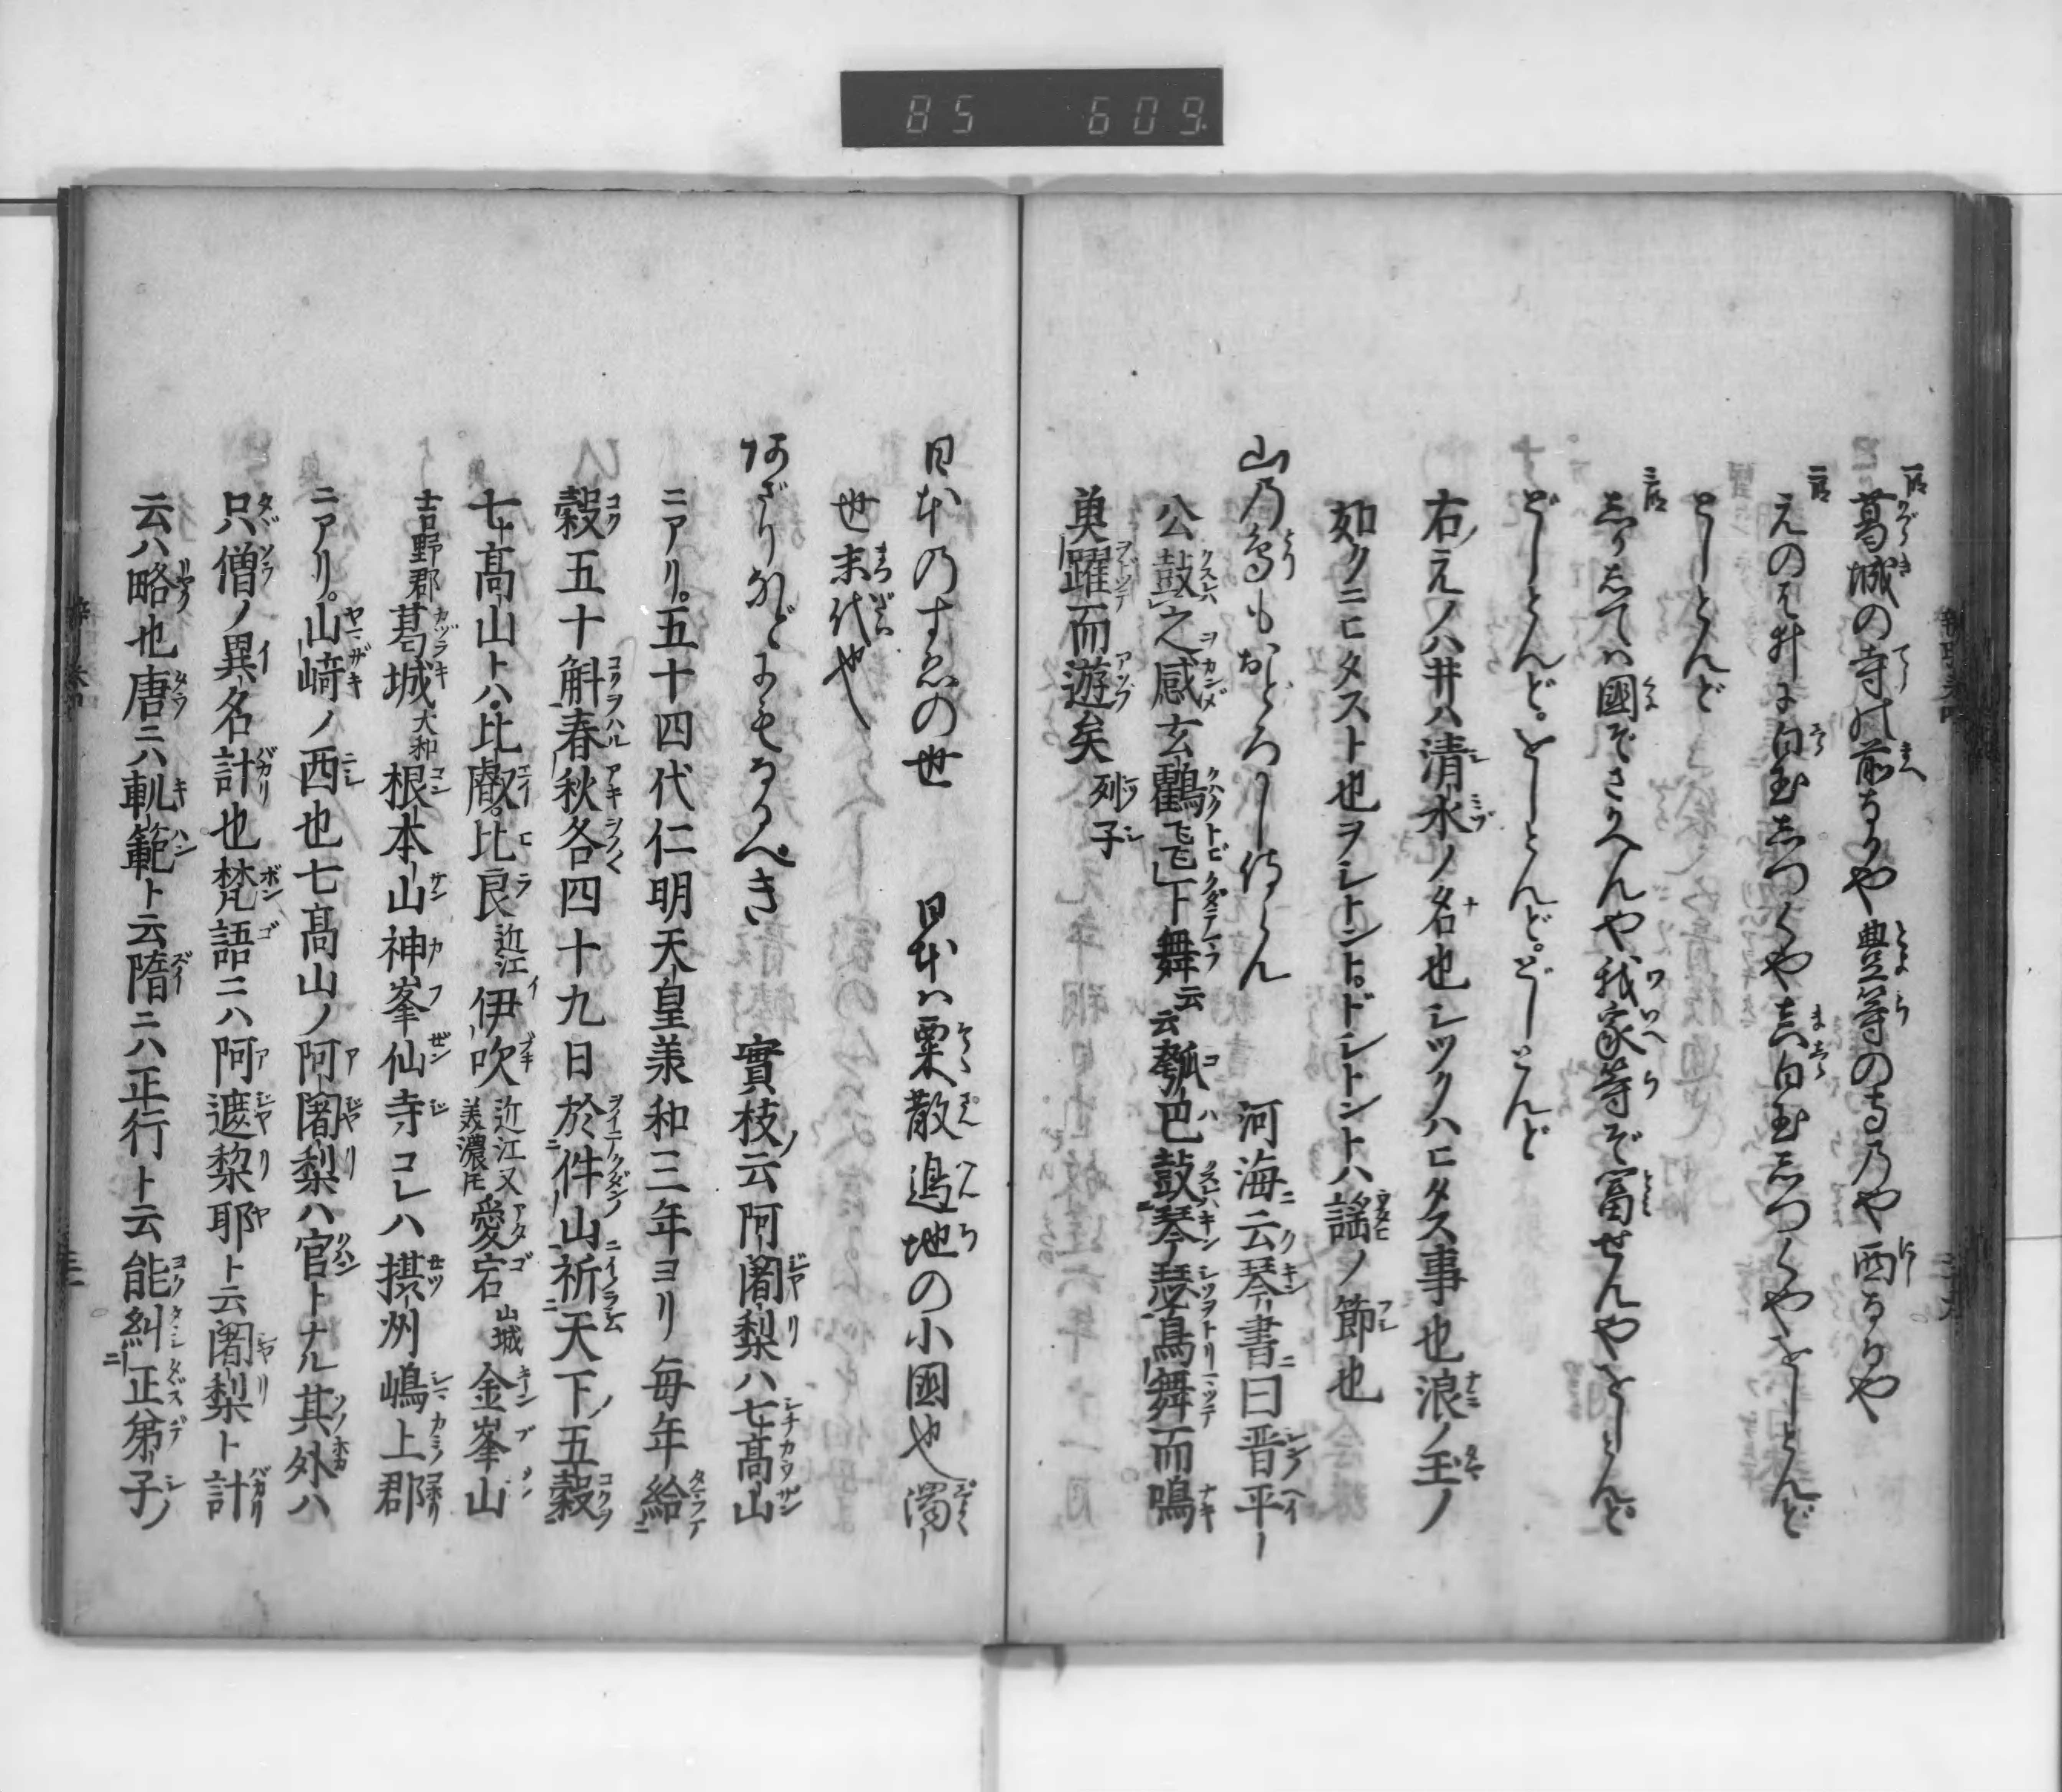 85 609
一段 葛城の寺の前なるや豊等の寺乃や西なるや
二段 えのは井に白玉しつくや真白玉しつくやをしとんど
としとんど
三段 しかしては國ぞさかへんや我家等ぞ冨せんやをしとんど
どしとんど。をしとんど。どしとんど
右ノえノハ井ハ清水ノ名也シツクハヒタス事也浪ノ玉ノ
如クニヒタスト也ヲシトント。ドシトントハ謡ノ節也
山乃鳥もおどろかし侍らん 河海ニ云琴書ニ曰晋平ー
公鼓之感玄鶴飛下舞云云瓠巴鼓琴瑟鳥舞而鳴
魚躍而遊矣 列子
日本乃すゑの世 日本ハ粟散邊地の小國也濁ー
世末代也
阿ざりなどにもなるべき 實枝ノ云阿闍梨ハ七髙山
ニアリ。五十四代仁明天皇羕和三年ヨリ毎年給
穀五十斛春秋各四十九日於件山祈天下ノ五穀
七髙山トハ比叡。比良近江伊吹近江又美濃圧愛宕山城金峯山
吉野郡葛城大和根本山神峯仙寺コレハ摂州嶋上郡
ニアリ。山﨑ノ西也七髙山ノ阿闍梨ハ官トナル其外ハ
只僧ノ異名計也梵語ニハ阿遮梨耶ト云闍梨ト計
云ハ略也唐ニハ軌範ト云隋ニハ正行ト云能糾正弟子ノ